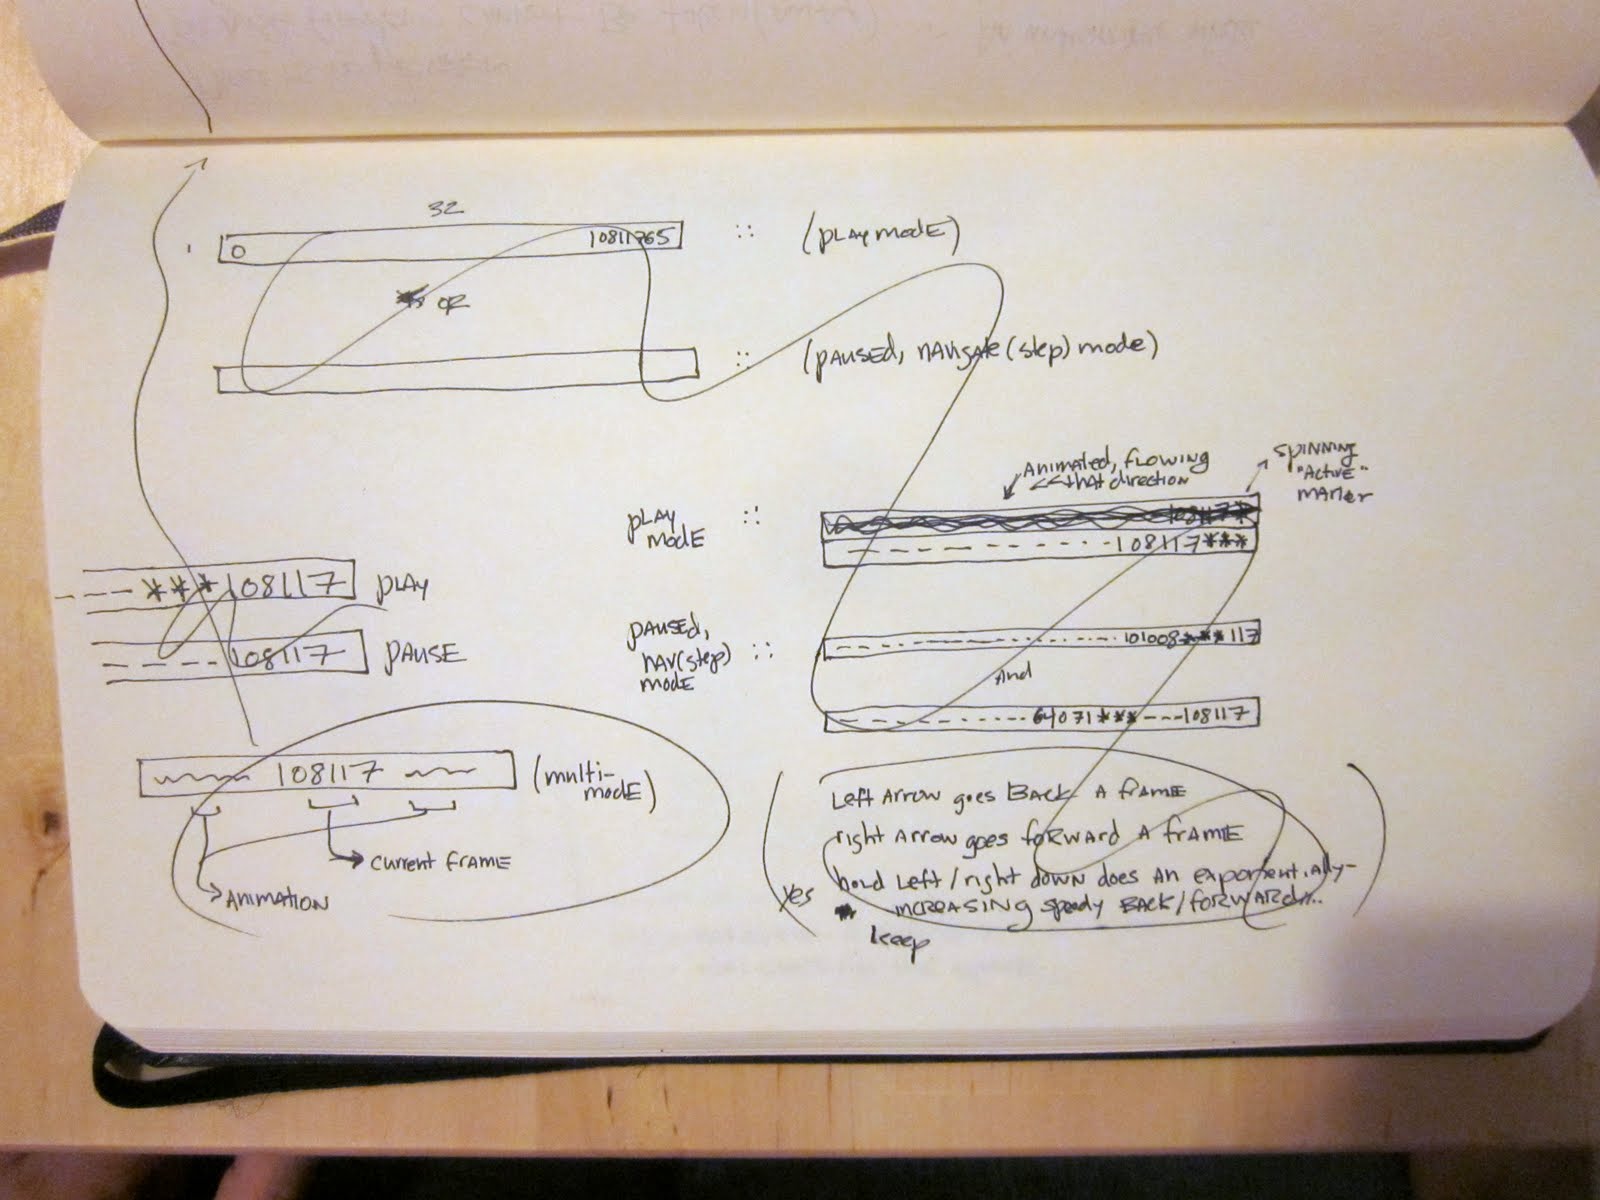 32
0 10811765 :: (play mode)
or
:: (paused, navigate (step) mode)
animated, flowing
<<that direction
spinning
"active"
marker
play
mode ::
108117*
- - - - - - - - · · · 108117***
***108117 play
- - - - - 108117 pause
paused,
nav(step)
mode ::
- - - - - - - - · · · 101008***117
and
- - - - - · · · · · 64071***---108117
~~~~ 108117 ~~~ (multi-
mode)
current frame
animation
(left arrow goes back a frame
right arrow goes forward a frame
hold left/right down does an exponentially-
increasing speedy back/forward...)
yes
keep